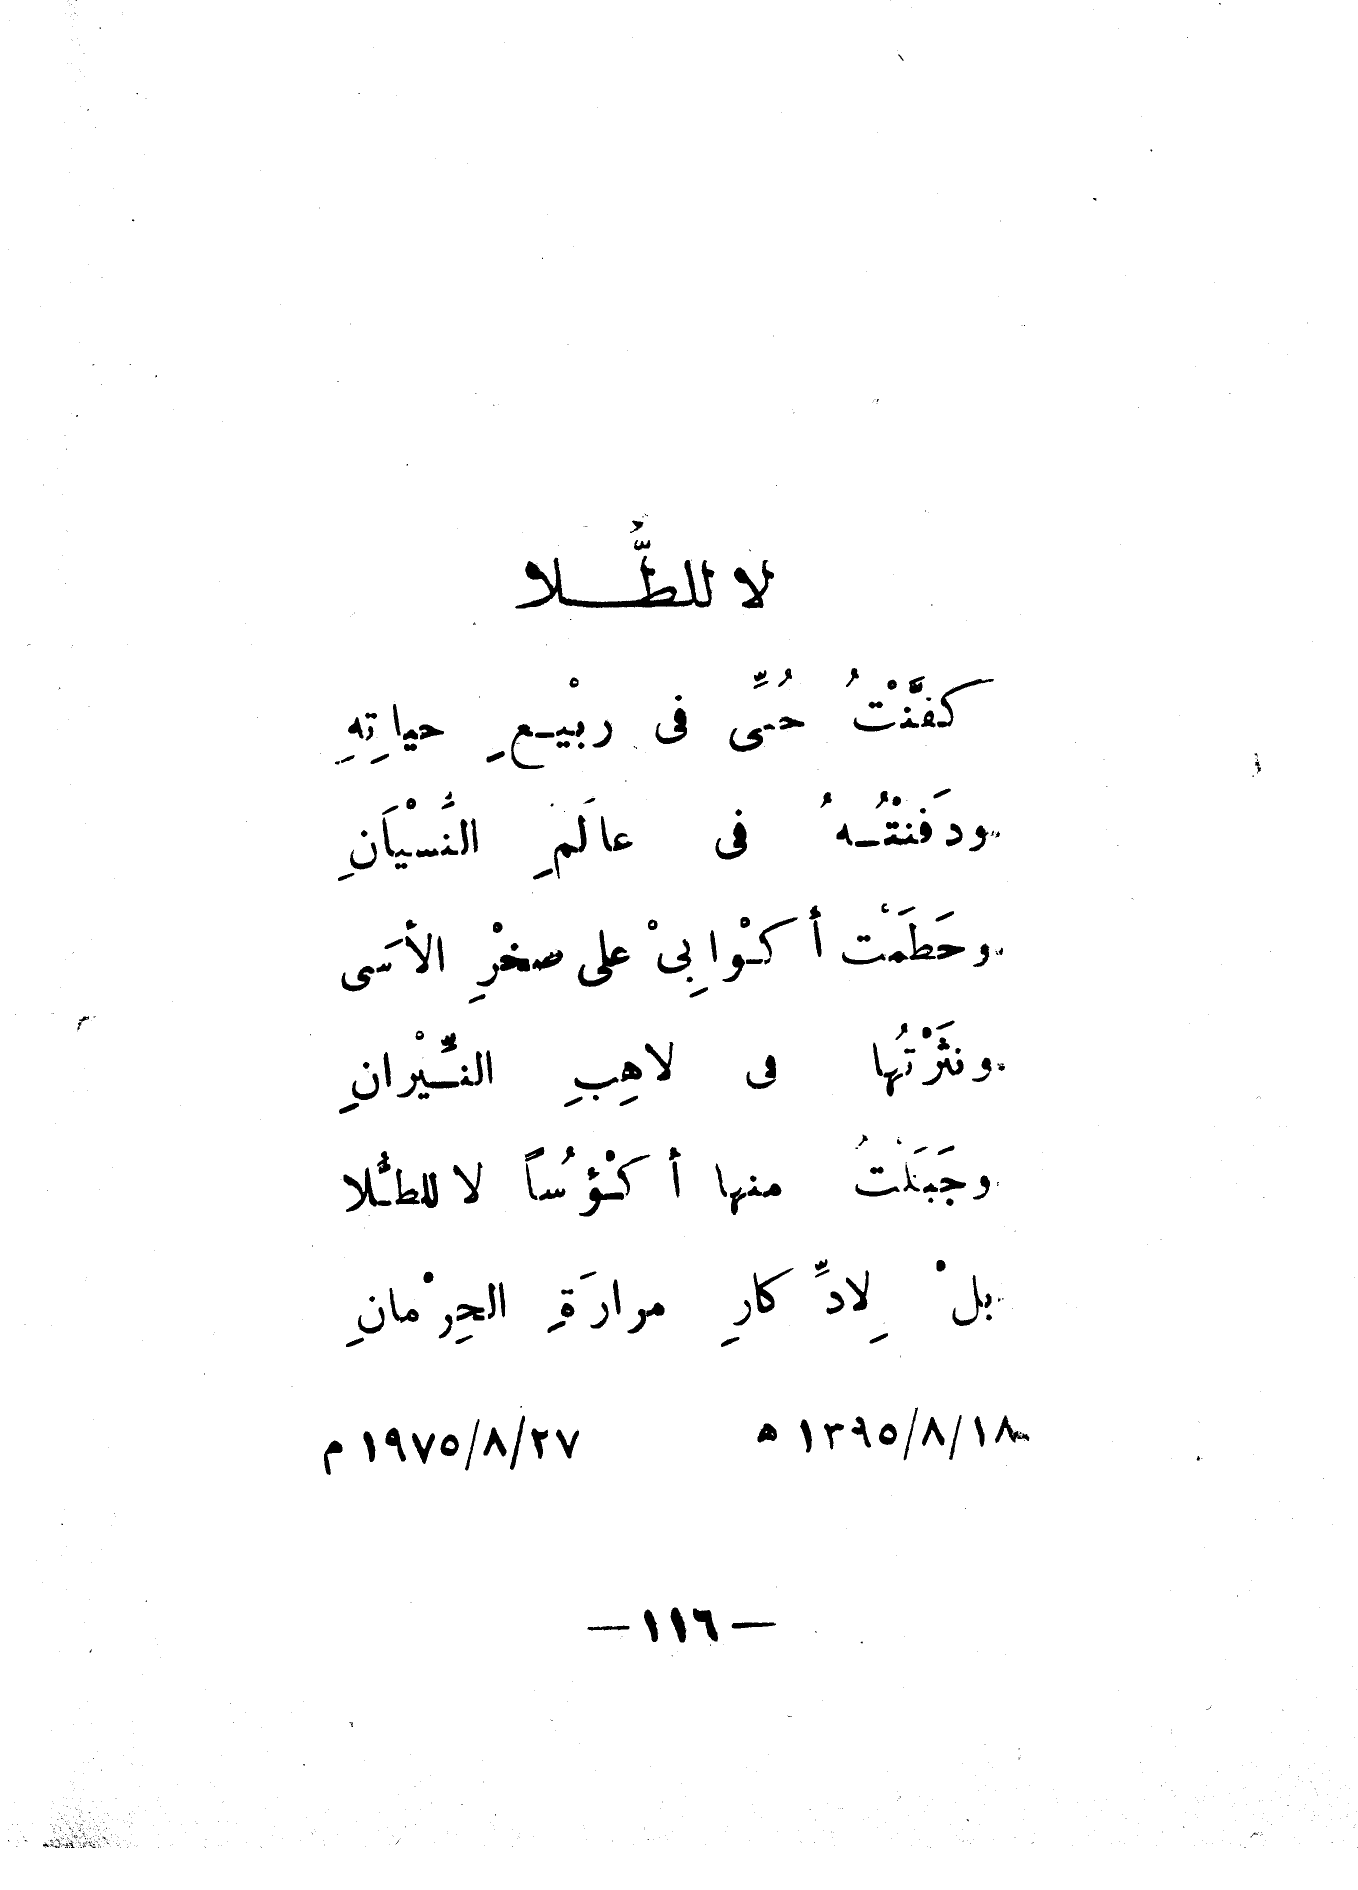 لا للطُّلا
كفَّنْتُ حُبِّى فى ربيْعِ حياتِهِ
ودَفَنْتُهُ فى عالَمِ النَّسْيَانِ
وحَطَمْتَ أكْوابِىْ على صخْرِ الأسَى
ونثَرْتُها فى لاهِبِ النِّيْرانِ
وجَبَلْتُ منها أكْؤُساً لا للطُّلا
بلْ لِادِّكارِ مرارَةِ الحِرْمانِ
١٣٩٥/٨/١٨ ه ١٩٧٥/٨/٢٧ م
— ١١٦ —